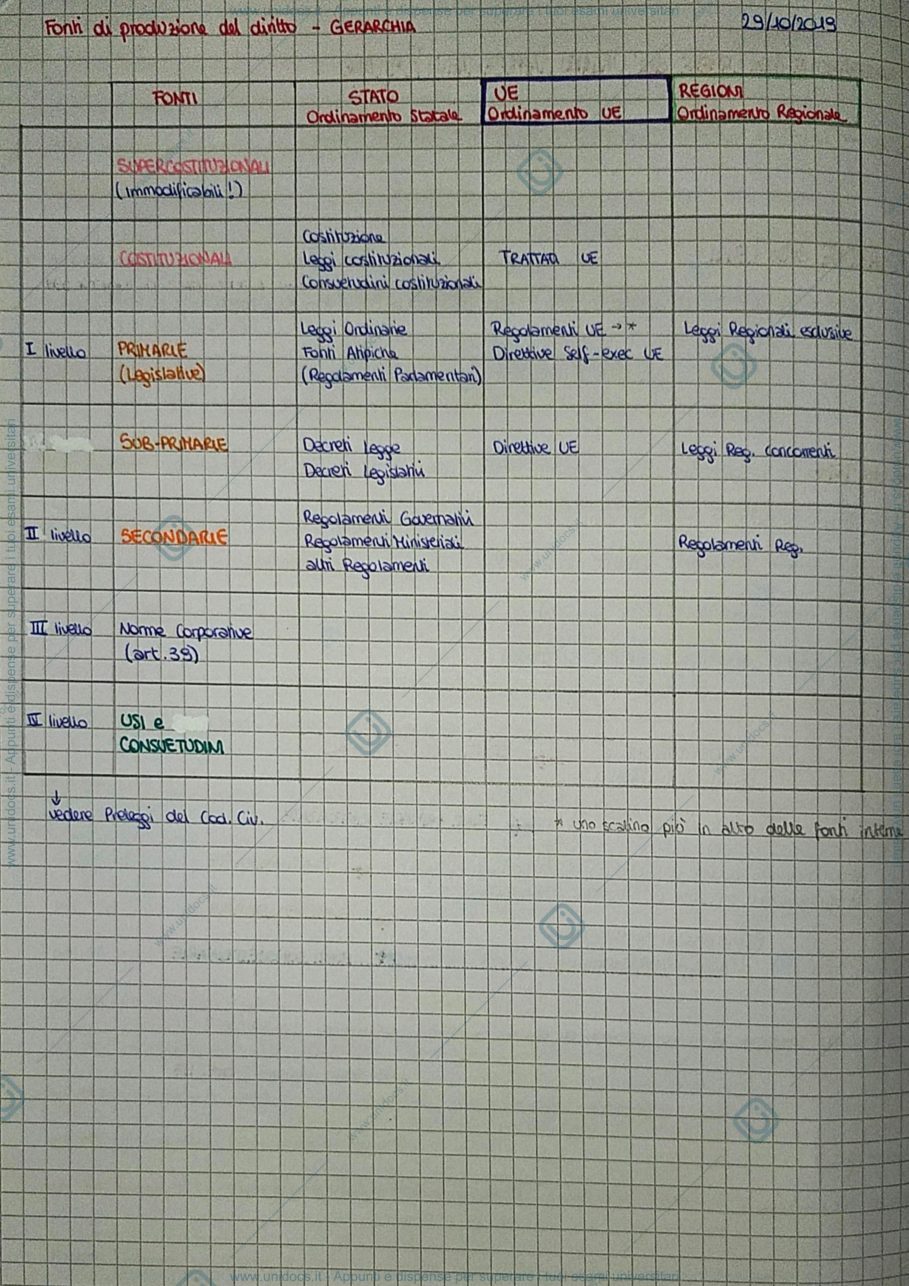 Fonti di produzione del diritto - GERARCHIA
29/10/2019
FONTI
STATO
Ordinamento Statale
UE
Ordinamento UE
REGIONI
Ordinamento Regionale
SUPERCOSTITUZIONALI
(immodificabili!)
COSTITUZIONALI
Costituzione
Leggi costituzionali
Consuetudini costituzionali
TRATTATI UE
I livello
PRIMARIE
(Legislative)
Leggi Ordinarie
Fonti Atipiche
(Regolamenti Parlamentari)
Regolamenti UE → *
Direttive Self-exec UE
Leggi Regionali esclusive
SUB-PRIMARIE
Decreti Legge
Decreti Legislativi
Direttive UE
Leggi Reg. Concorrenti
II livello
SECONDARIE
Regolamenti Governativi
Regolamenti Ministeriali
altri Regolamenti
Regolamenti Reg.
III livello
Norme Corporative
(art. 39)
IV livello
USI e
CONSUETUDINI
↓
vedere Preleggi del Cod. Civ.
* uno scalino più in alto delle fonti interne
www.unidocs.it - Appunti e dispense per superare i tuoi esami universitari
www.unidocs.it